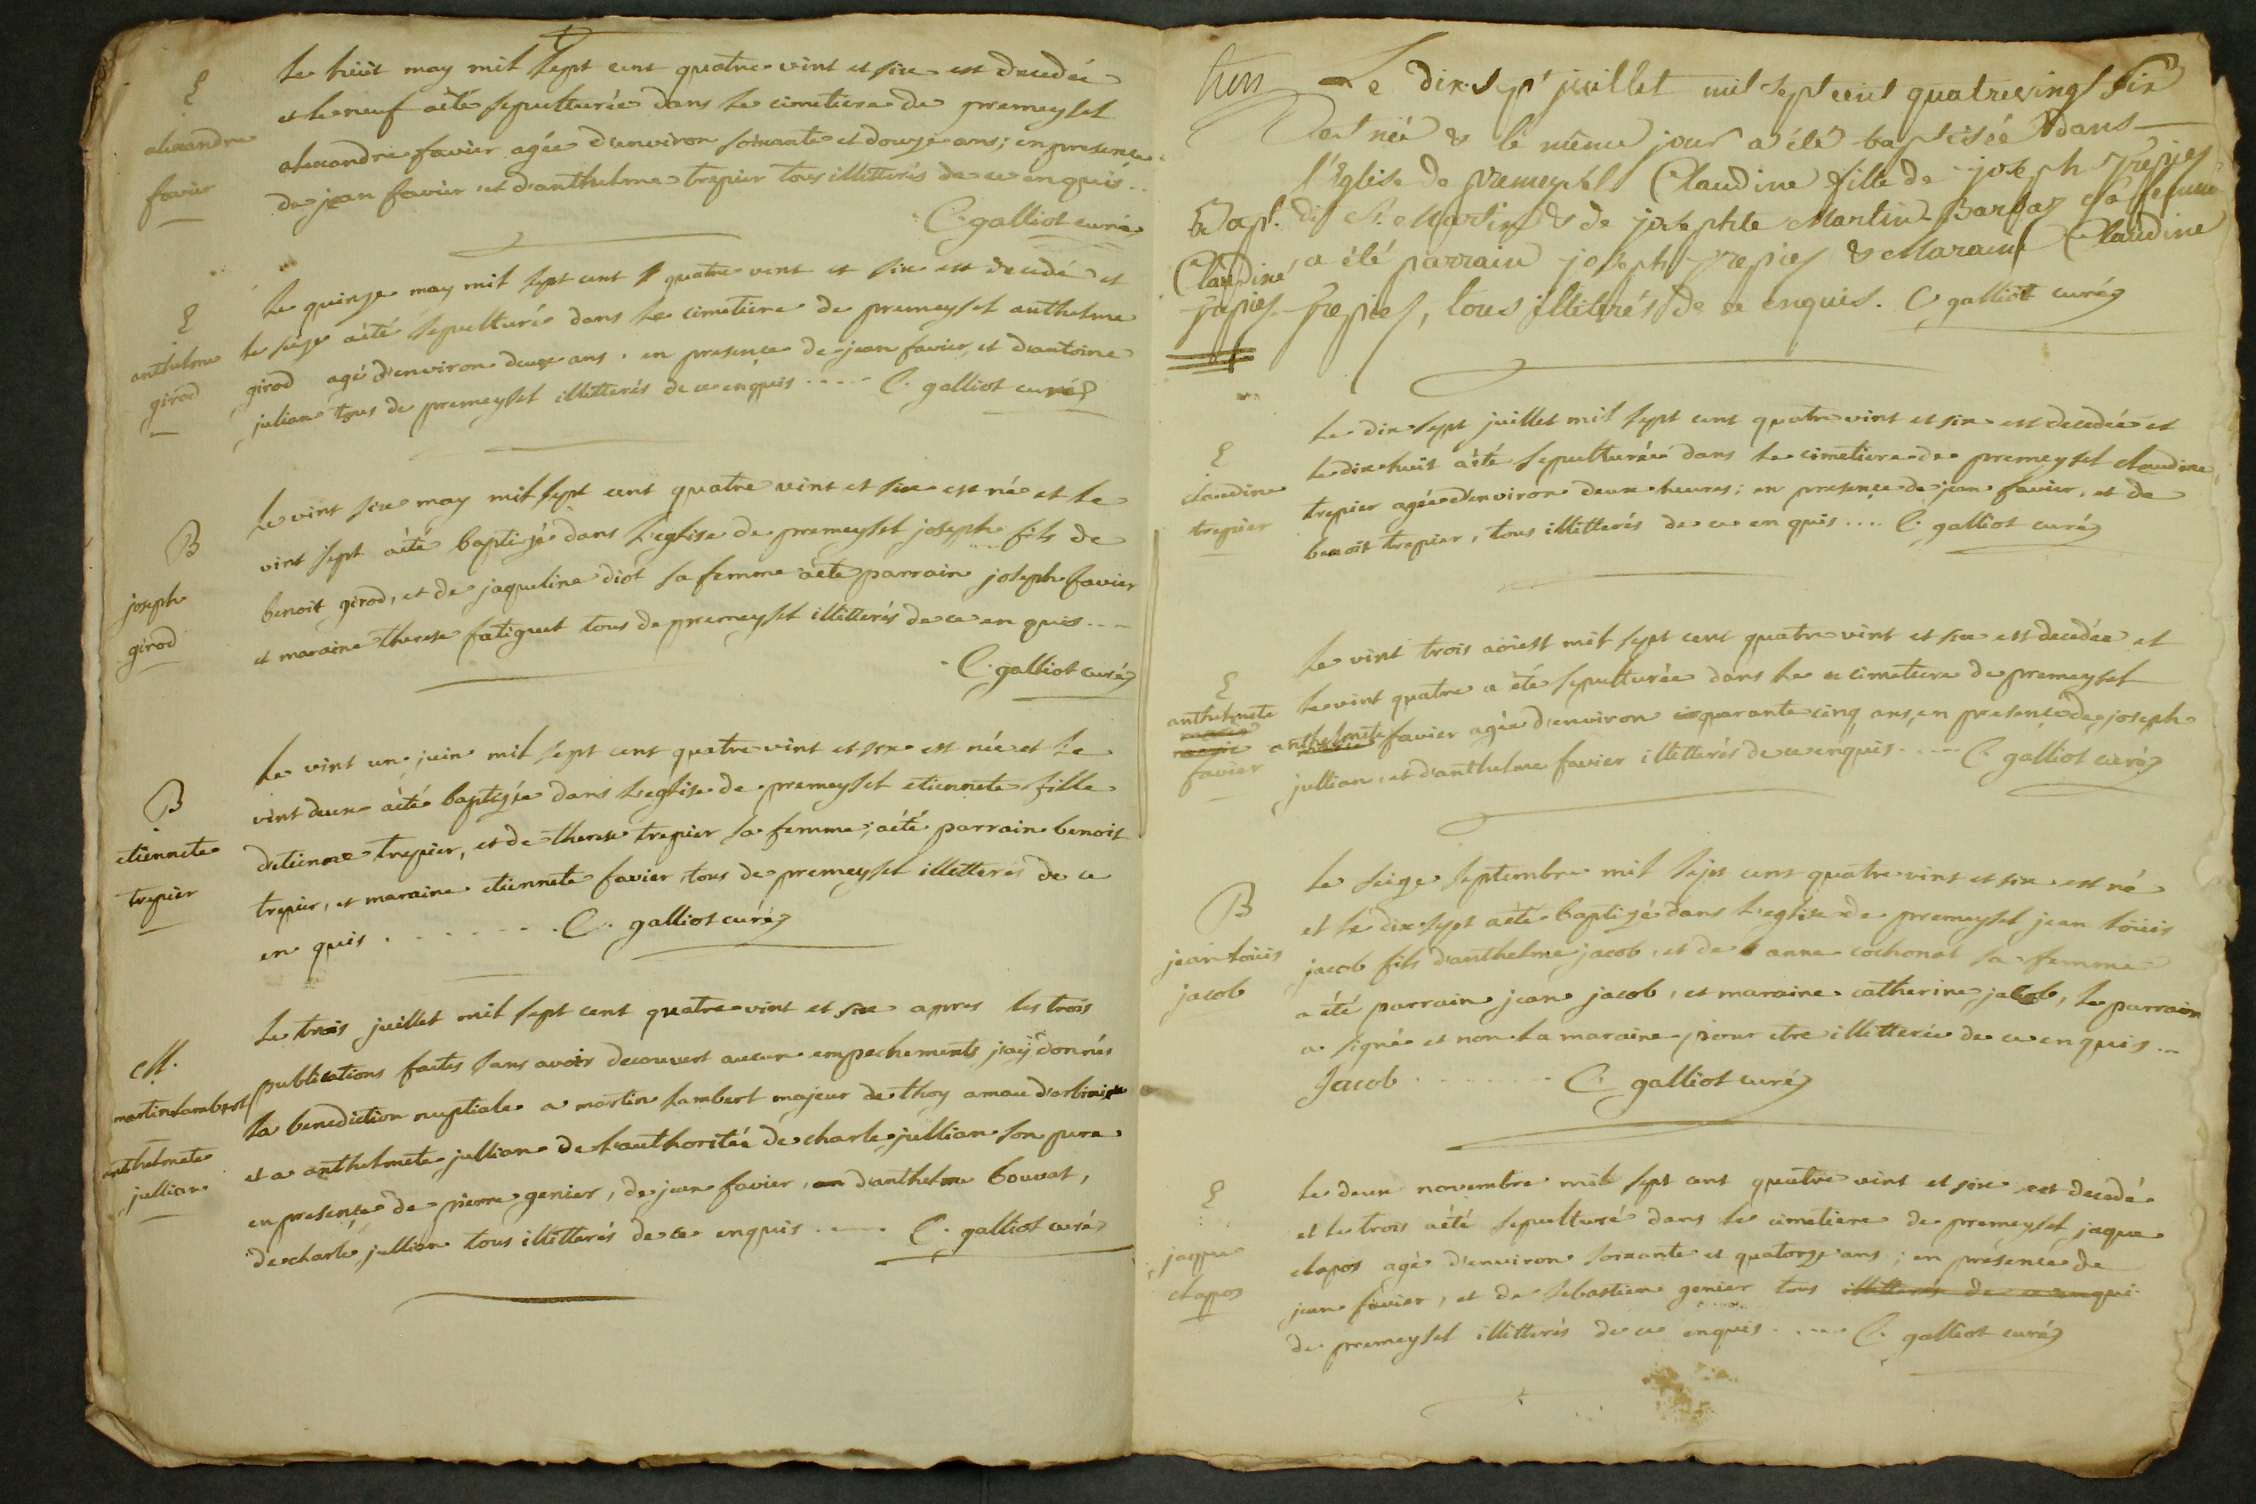 le huit may mil sept cent quatre vint et six est decedée
et le neuf aété sepulturée dans le cimetiere de premeysel
alexandre favier agée d'environ soixante et douze ans; en presence
de jean favier et d'anthelme trepier tous illitterés de ce enquis..
C. galliot curé
alexandre
favier
le quinze may mil sept cent quatre vint et six est decedé et
le seize aété sepulturé dans le cimetiere de premeysel anthelme
girod agé d'environ deux ans. en presence de jean favier, et d'antoine
julian tous de premeysel illitterés de ce enquis ..... C. galliot curé
anthelme
girod
le vint six may mil sept cent quatre vint et six est né et le
vint sept aété baptizé dans l'eglise de premeysel joseph fils de
benoit girod, et de jaqueline diot sa femme aété parrain joseph favier
et maraine therese fatiguet tous de premeysel illitterés de ce en quis ...
C. galliot curé
B
joseph
girod
le vint un juin mil sept cent quatre vint et six est née et le
vint deux aété baptizée dans l'eglise de premeysel etiennete fille
d'etienne trepier, et de therese trepier sa femme; aété parrain benoit
trepier, et maraine etiennete favier tous de premeysel illitterés de ce
en quis ........ C. galliot curé
B
etiennete
trepier
le trois juillet mil sept cent quatre vint et six apres les trois
publications faites sans avoir decouvert aucun empechements j'aÿ donnés
la benediction nuptiale a martin lambert majeur de thoy amau d'arbinieu
et a anthelmete jullian de l'authoritée de charle jullian son pere
en presence de pierre genier, de jean favier, d'anthelme bouvat,
de charle jullian tous illitterés de ce enquis ...... C. galliot curé
M.
martin lambert
anthelmete
jullian
Le dix-sept juillet mil sept cent quatrevingt Six
est née & le même jour a été baptisée dans
l'Eglise de premeysel Claudine fille de joseph trepier
de St. Martin & de josephte Martin Barbaz sa femme
a été parrain joseph trepier & Maraine Claudine
trepier, tous illiterés de ce enquis. C galliot curé
Bapt.
Claudine
trepier
le dix sept juillet mil sept cent quatre vint et six est decedée et
le dix huit aété sepulturée dans le cimetiere de premeysel claudine
trepier agée d'environ deux heures; en presence de jean favier, et de
benoit trepier, tous illitterés de ce en quis .... C. galliot curé
claudine
trepier
le vint trois aoust mil sept cent quatre vint et six est decedée et
le vint quatre a été sepulturée dans le cimetiere de premeysel
anthelmete favier agée d'environ quarante cinq ans, en presence de joseph
jullian, et d'anthelme favier illitterés de ce enquis ..... C. galliot curé
anthelmete
favier
le seize septembre mil sept cent quatre vint et six est né
et le dix sept aété baptizé dans l'eglise de premeysel jean loüis
jacob fils d'anthelme jacob, et de anne cochonat sa femme
a été parrain jean jacob, et maraine catherine jacob, le parrain
a signé et non la maraine pour etre illitterée de ce enquis ...
Jacob ........ C. galliot curé
B
jean loüis
jacob
le deux novembre mil sept cent quatre vint et six est decedé
et le trois aété sepulturé dans le cimetiere de premeysel jaque
clapos agé d'environ soixante et quatorze ans; en présence de
jean favier, et de sebastien genier tous illitterés de ce enqui
de premeysel illitterés de ce enquis ..... C. galliot curé
jaque
clapos